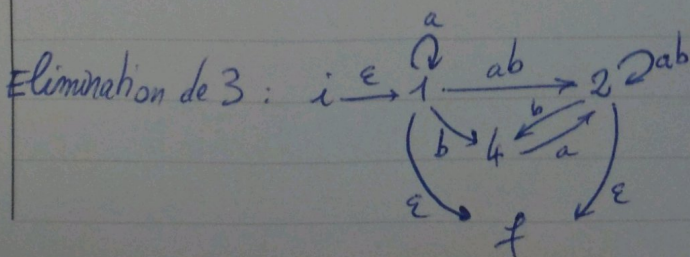 a
Elimination de 3 : i ε 1 ab 2 ab
b 4 b a
ε f ε